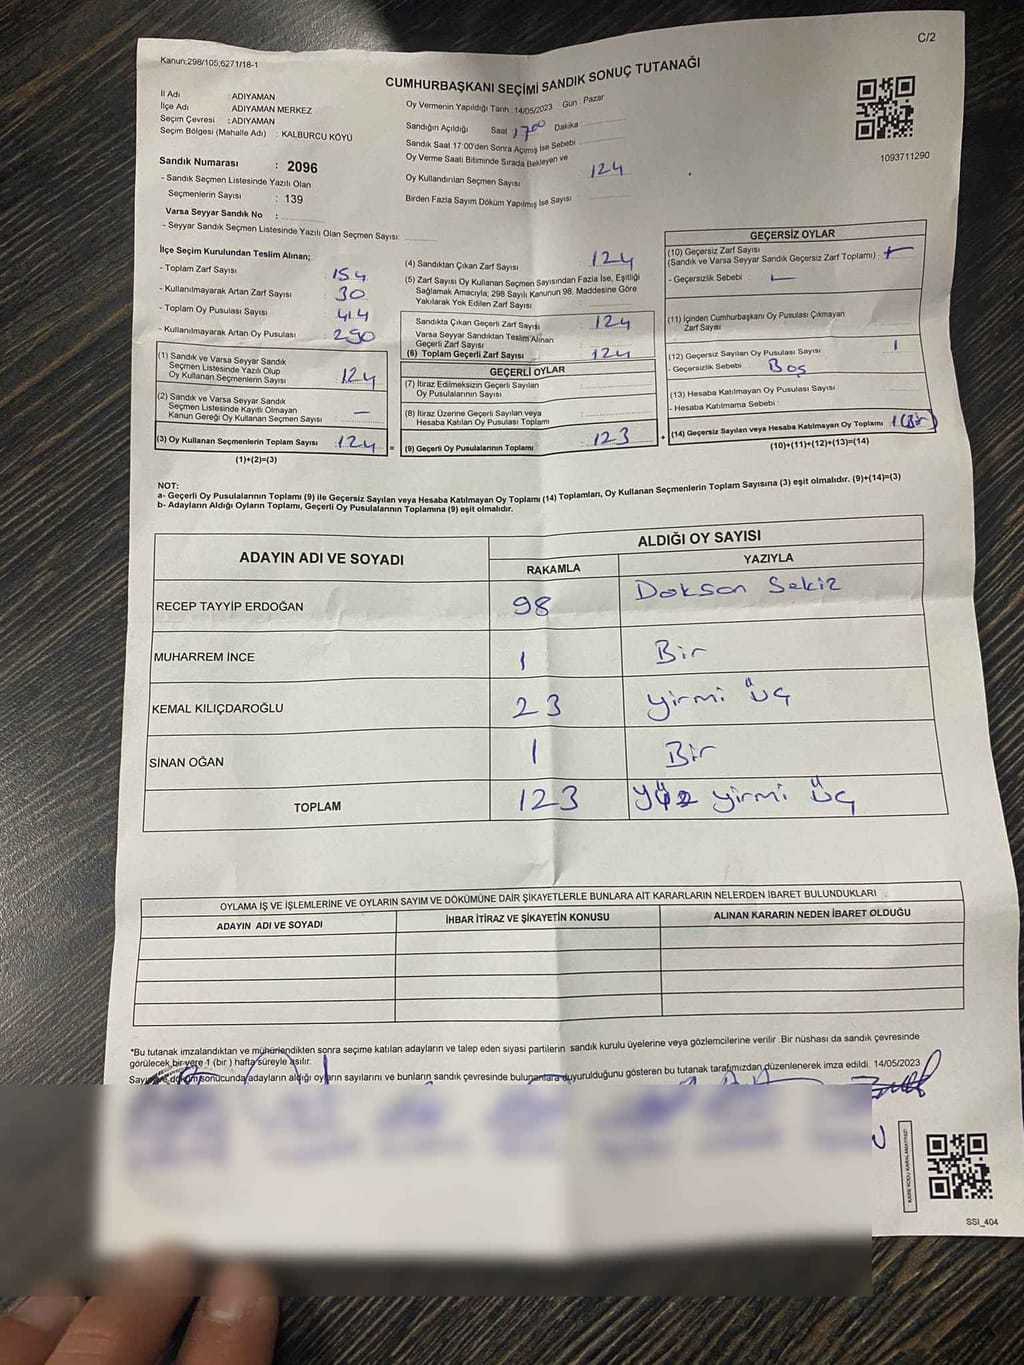 C/2
Kanun;298/105,6271/18-1
CUMHURBAŞKANI SEÇİMİ SANDIK SONUÇ TUTANAĞI
İl Adı : ADIYAMAN
İlçe Adı : ADIYAMAN MERKEZ
Seçim Çevresi : ADIYAMAN
Seçim Bölgesi (Mahalle Adı) : KALBURCU KÖYÜ
Sandık Numarası : 2096
- Sandık Seçmen Listesinde Yazılı Olan
Seçmenlerin Sayısı : 139
Varsa Seyyar Sandık No :
- Seyyar Sandık Seçmen Listesinde Yazılı Olan Seçmen Sayısı:
Oy Vermenin Yapıldığı Tarih :14/05/2023 Gün : Pazar
Sandığın Açıldığı Saat 1700 Dakika :
Sandık Saat 17:00'den Sonra Açımış İse Sebebi :
Oy Verme Saati Bitiminde Sırada Bekleyen ve
Oy Kullandırılan Seçmen Sayısı : 124
Birden Fazla Sayım Döküm Yapılmış İse Sayısı :
1093711290
İlçe Seçim Kurulundan Teslim Alınan;
- Toplam Zarf Sayısı : 154
- Kullanılmayarak Artan Zarf Sayısı : 30
- Toplam Oy Pusulası Sayısı : 414
- Kullanılmayarak Artan Oy Pusulası : 290
(1) Sandık ve Varsa Seyyar Sandık
Seçmen Listesinde Yazılı Olup
Oy Kullanan Seçmenlerin Sayısı : 124
(2) Sandık ve Varsa Seyyar Sandık
Seçmen Listesinde Kayıtlı Olmayan
Kanun Gereği Oy Kullanan Seçmen Sayısı : —
(3) Oy Kullanan Seçmenlerin Toplam Sayısı : 124 =
(1)+(2)=(3)
(4) Sandıktan Çıkan Zarf Sayısı : 124
(5) Zarf Sayısı Oy Kullanan Seçmen Sayısından Fazla İse, Eşitliği
Sağlamak Amacıyla; 298 Sayılı Kanunun 98. Maddesine Göre
Yakılarak Yok Edilen Zarf Sayısı :
Sandıkta Çıkan Geçerli Zarf Sayısı : 124
Varsa Seyyar Sandıktan Teslim Alınan
Geçerli Zarf Sayısı :
(6) Toplam Geçerli Zarf Sayısı : 124
GEÇERLİ OYLAR
(7) İtiraz Edilmeksizin Geçerli Sayılan
Oy Pusulalarının Sayısı :
(8) İtiraz Üzerine Geçerli Sayılan veya
Hesaba Katılan Oy Pusulası Toplamı :
(9) Geçerli Oy Pusulalarının Toplamı : 123 +
GEÇERSİZ OYLAR
(10) Geçersiz Zarf Sayısı
(Sandık ve Varsa Seyyar Sandık Geçersiz Zarf Toplamı) :
- Geçersizlik Sebebi : —
(11) İçinden Cumhurbaşkanı Oy Pusulası Çıkmayan
Zarf Sayısı :
(12) Geçersiz Sayılan Oy Pusulası Sayısı : 1
- Geçersizlik Sebebi : Boş
(13) Hesaba Katılmayan Oy Pusulası Sayısı :
- Hesaba Katılmama Sebebi :
(14) Geçersiz Sayılan veya Hesaba Katılmayan Oy Toplamı : 1 (Bir)
(10)+(11)+(12)+(13)=(14)
NOT:
a- Geçerli Oy Pusulalarının Toplamı (9) ile Geçersiz Sayılan veya Hesaba Katılmayan Oy Toplamı (14) Toplamları, Oy Kullanan Seçmenlerin Toplam Sayısına (3) eşit olmalıdır. (9)+(14)=(3)
b- Adayların Aldığı Oyların Toplamı, Geçerli Oy Pusulalarının Toplamına (9) eşit olmalıdır.
ADAYIN ADI VE SOYADI ALDIĞI OY SAYISI
RAKAMLA YAZIYLA
RECEP TAYYİP ERDOĞAN 98 Doksan Sekiz
MUHARREM İNCE 1 Bir
KEMAL KILIÇDAROĞLU 23 yirmi üç
SİNAN OĞAN 1 Bir
TOPLAM 123 yüz yirmi üç
OYLAMA İŞ VE İŞLEMLERİNE VE OYLARIN SAYIM VE DÖKÜMÜNE DAİR ŞİKAYETLERLE BUNLARA AİT KARARLARIN NELERDEN İBARET BULUNDUKLARI
ADAYIN ADI VE SOYADI İHBAR İTİRAZ VE ŞİKAYETİN KONUSU ALINAN KARARIN NEDEN İBARET OLDUĞU
*Bu tutanak imzalandıktan ve mühürlendikten sonra seçime katılan adayların ve talep eden siyasi partilerin sandık kurulu üyelerine veya gözlemcilerine verilir .Bir nüshası da sandık çevresinde
görülecek bir yere 1 (bir ) hafta süreyle asılır.
Sayım ve döküm sonucunda adayların aldığı oyların sayılarını ve bunların sandık çevresinde bulunanlara duyurulduğunu gösteren bu tutanak tarafımızdan düzenlenerek imza edildi. 14/05/2023
KARE KODU KARALAMAYINIZ!
SSİ_404